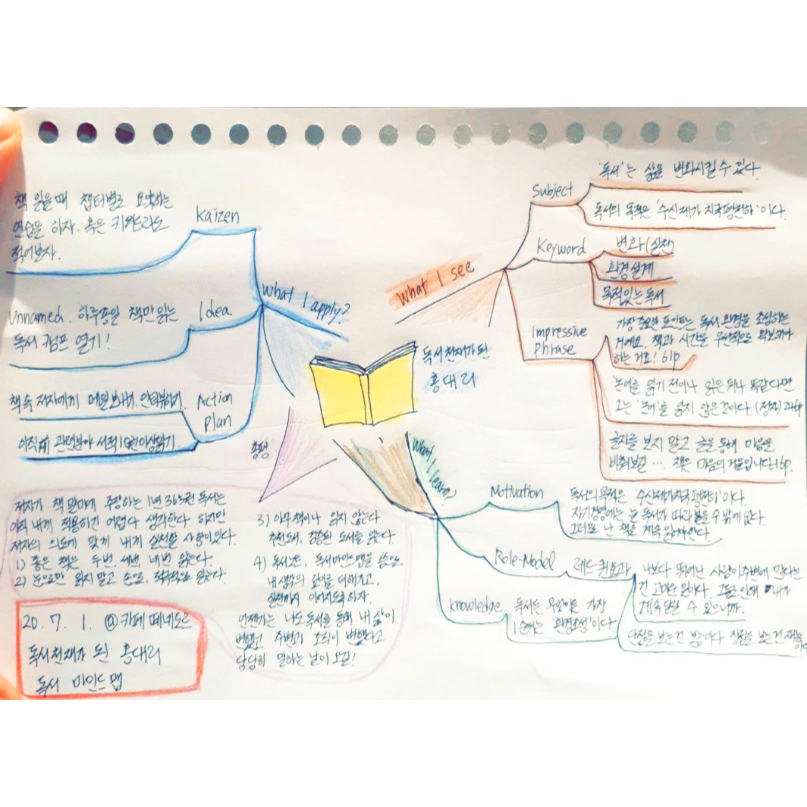 책 읽을때 챕터별로 요약하는
연습을 하자. 혹은 키워드라도
적어보자.
Kaizen
Unnamed. 하루종일 책만 읽는
독서 캠프 열기!
Idea
책속 저자에게 메일보내기, 인터뷰하기.
관련분야 서적
Action
Plan
What I apply?
What I see
Subject
'독서'는 삶을 변화시킬 수 있다.
독서의 목적은 '수신제가 치국평천하'이다.
Keyword
변화 (실천)
환경설계
목적있는 독서
Impressive
Phrase
가장 중요한 포인트는 독서 환경을 조성하는
거예요. 책과 시간을 우선적으로 확보해야
하는 거죠! 61p
논어를 읽기 전이나 읽은 뒤나 똑같다면
그는 '논어'를 읽지 않은 것이다. (정자)
글자를 보지 말고 글을 통해 마음을
책은 마음의 거울입니다.
독서천재가 된
홍대리
총평
What I learn
Motivation
독서의 목적은 수신제가치국평천하'이다.
자기경영에는 늘 독서가 따라올 수 밖에 없다.
그러므로 난 책을 계속 읽어야한다.
Role-Model
레드퀸효과
나보다 뛰어난 사람이 주변에 많다는
건 고마운 일이다.
계속 뛸 수 있으니까.
Knowledge
독서는 목적이 가장
'환경조성'이다.
단점을 보는건 쉽다. 장점을 보는건 재능
저자가 책 말미에 주장하는 1년 365권 독서는
아직 내게 적용하긴 어렵다 생각한다. 하지만
저자의 의도에 맞게 내게 실천할 사항이 있다.
1) 좋은 책은 두번, 세번, 네번 읽는다.
2) 눈으로만 읽지 말고 손으로, 적극적으로 읽는다.
3) 아무 책이나 읽지 않는다.
추천도서, 검증된 도서를 읽는다.
4) 독서노트, 독서마인드맵을 씀으로
내 생각의 깊이를 더해가고,
실천까지 이어지도록 하자.
언젠가는 나도 독서를 통해 내 삶이
변했고 주변과 조직이 변했다고
당당히 말하는 날이 오길!
20. 7. 1. @ 카페 떼네도르
독서천재가 된 홍대리
독서 마인드맵